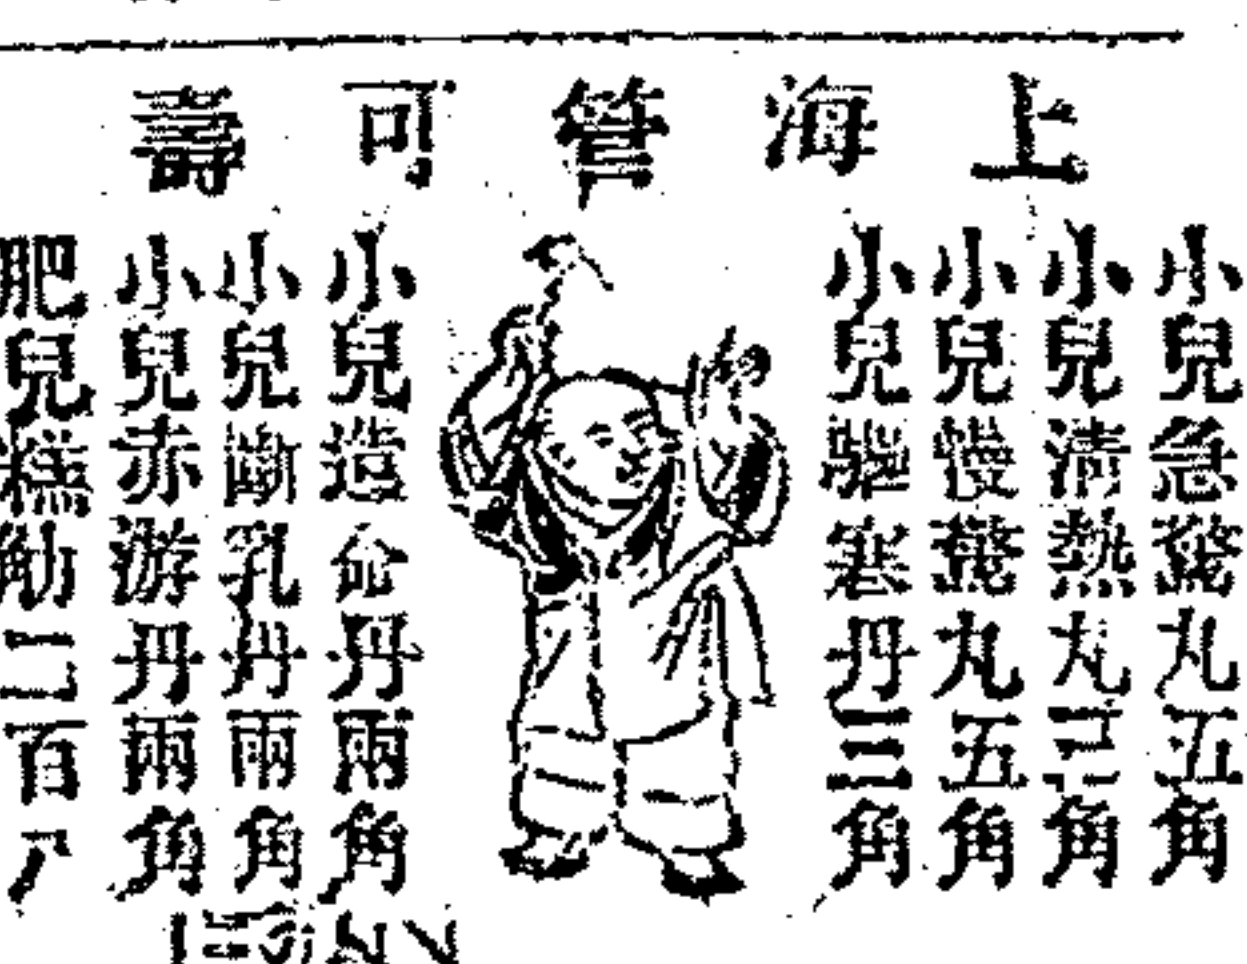 上海管可壽
小兒急驚丸五角
小兒清熱丸三角
小兒慢驚丸五角
小兒驅寒丹三角
小兒造命丹兩角
小兒斷乳丹兩角
小兒赤游丹兩角
肥兒糕觔二百